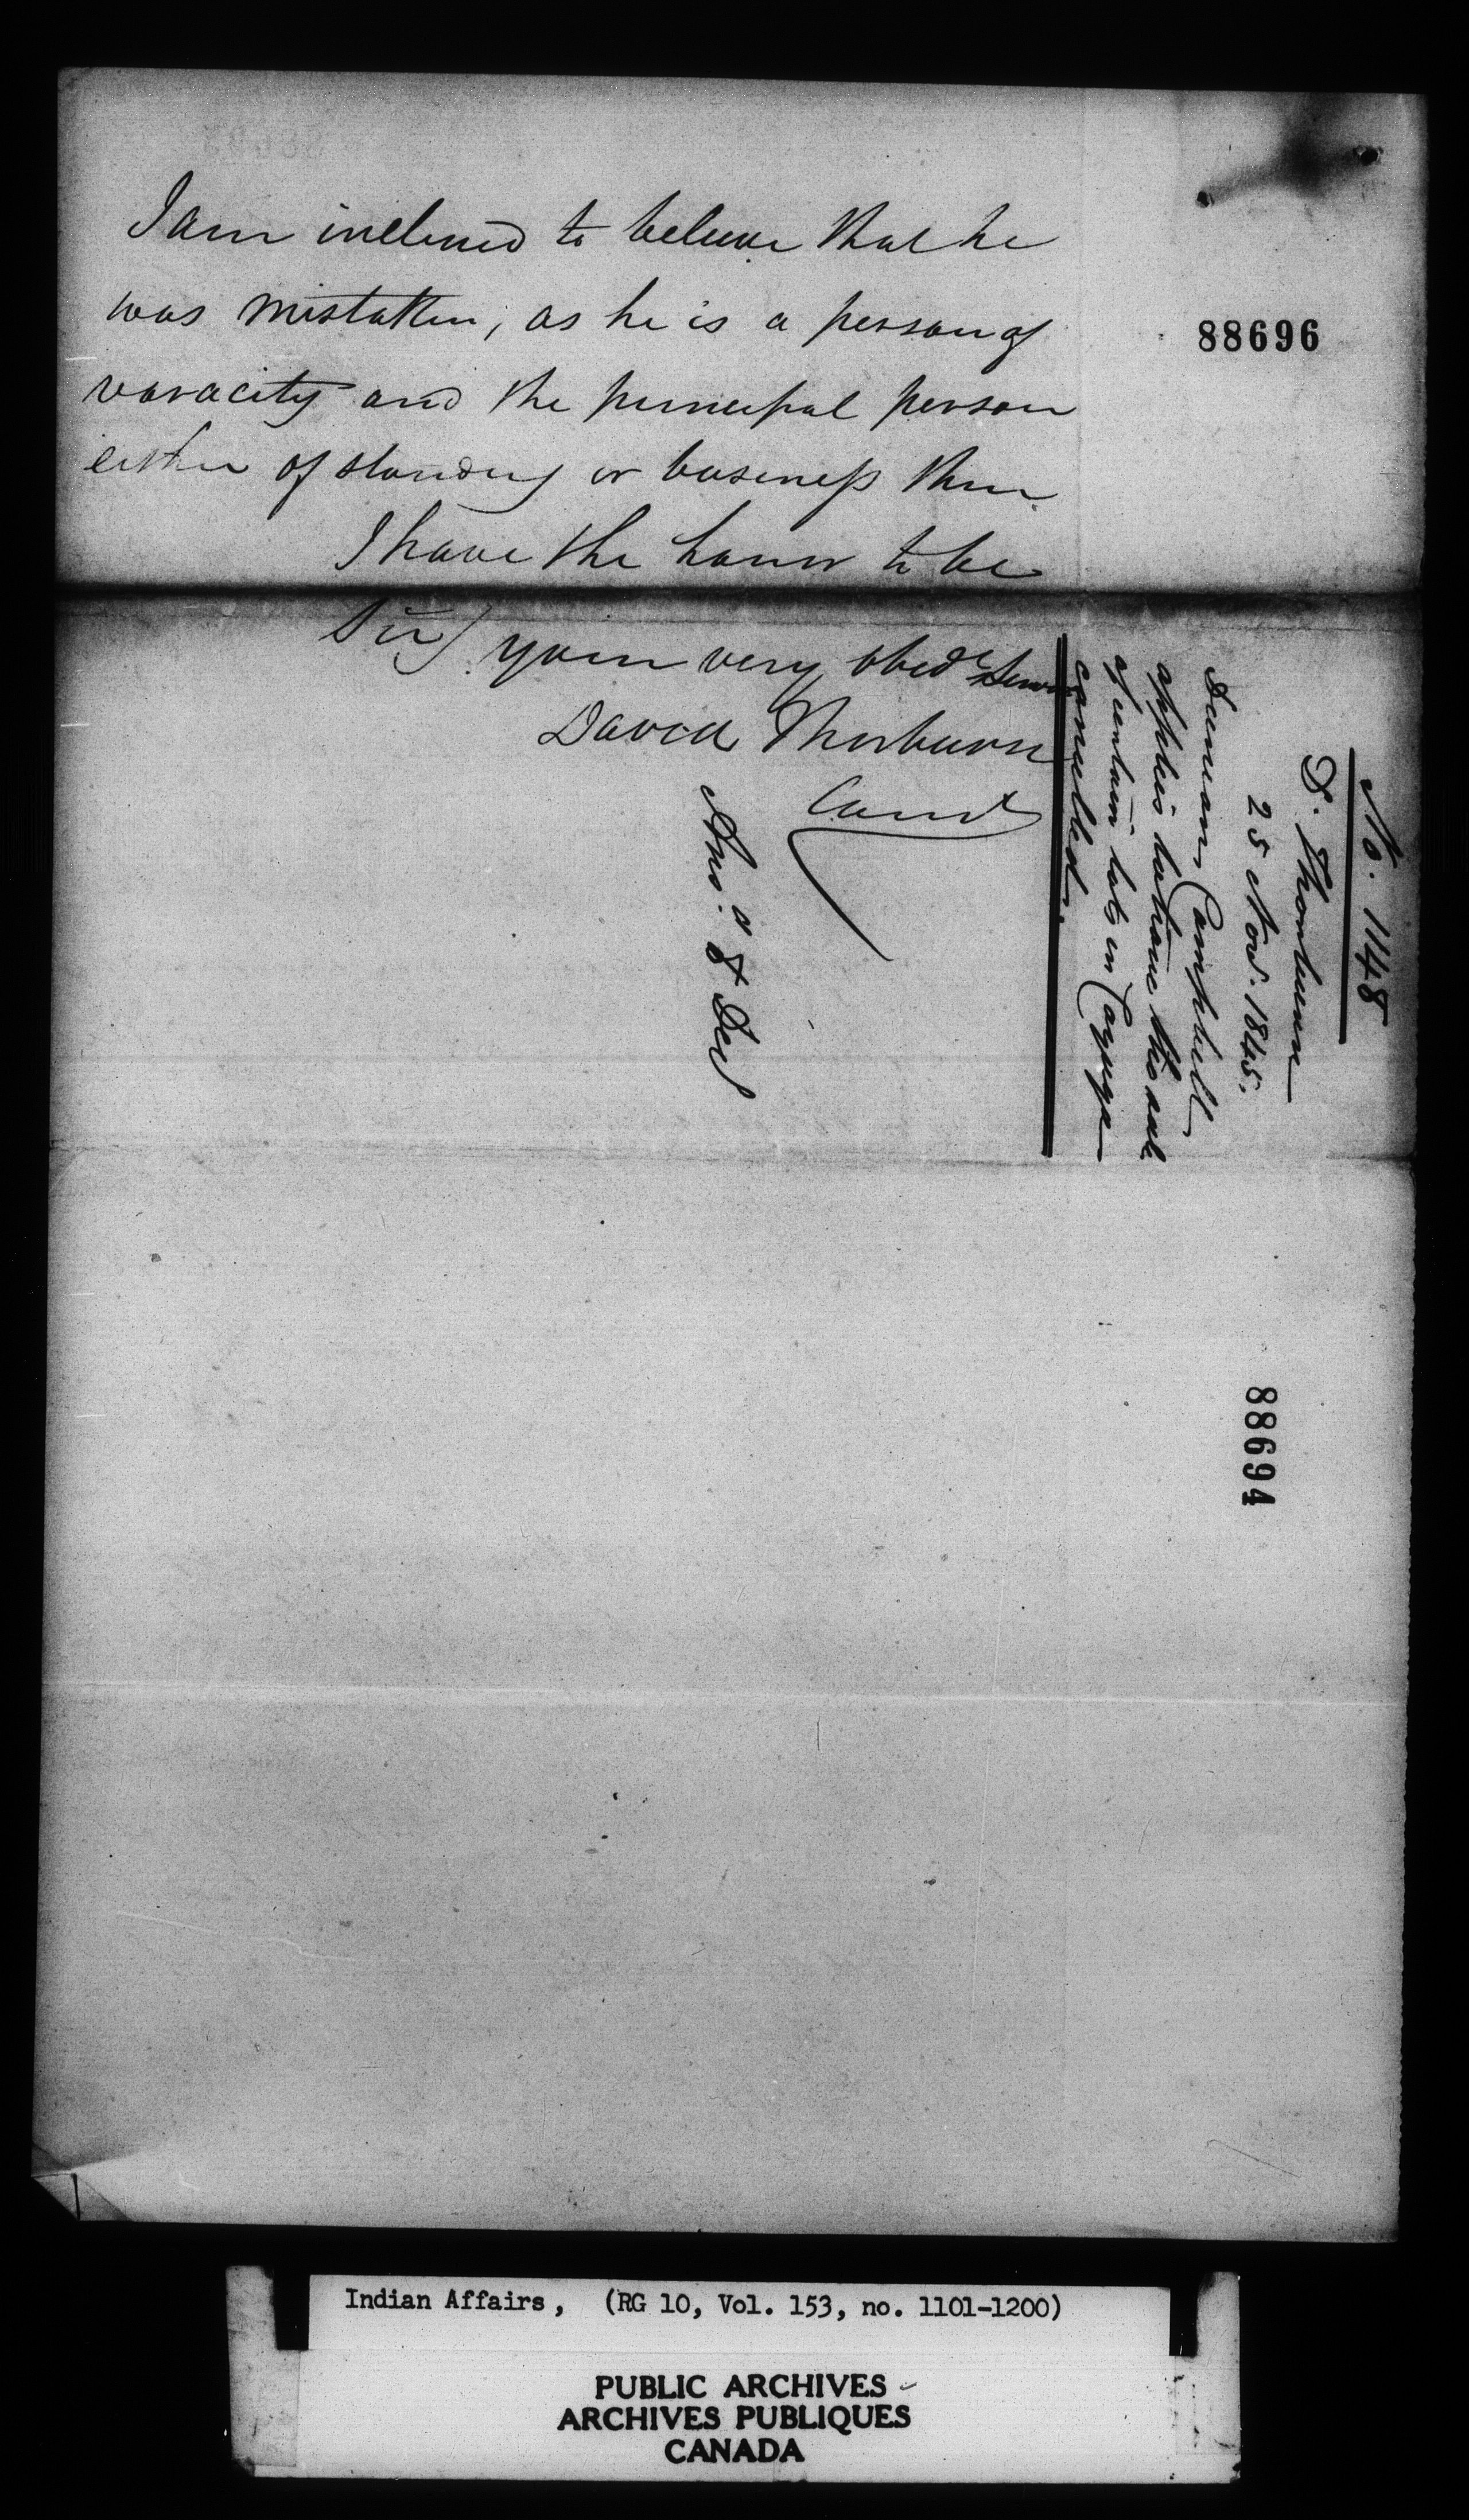 I am inclined to believe that he
was mistaken, as he is a person of
varacity and the principal person
either of standing or business there.
I have the honor to be
Sir, your very obedt Servt
David Thorburn
88696
No. 1148
D. Thorburn
25 Nov. 1845.
Duncan Campbell
applies to have the sale
of certain lots in Cayuga
cancelled.
8 Dec
88694
Indian Affairs, (RG 10, Vol. 153, no. 1101-1200)
PUBLIC ARCHIVES
ARCHIVES PUBLIQUES
CANADA